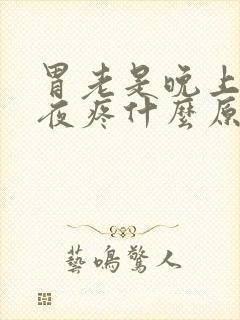 胃老是晚上
夜疼什麼原
藝鳴驚人